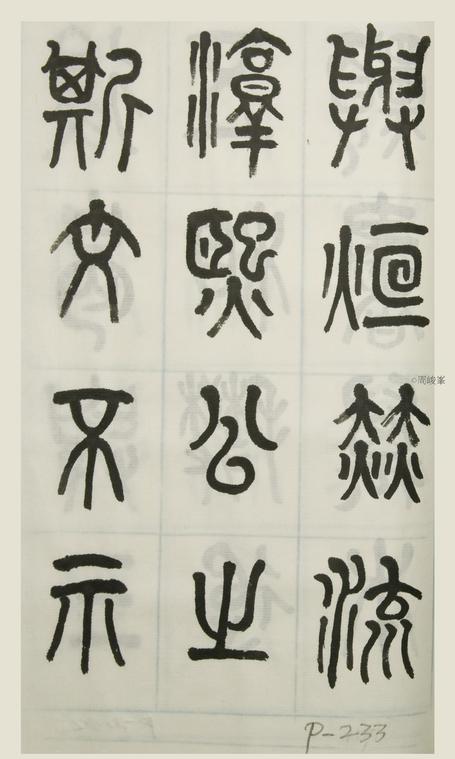 與烜赫流
淳熙公之
斯文不示
©周峻峯
P-233